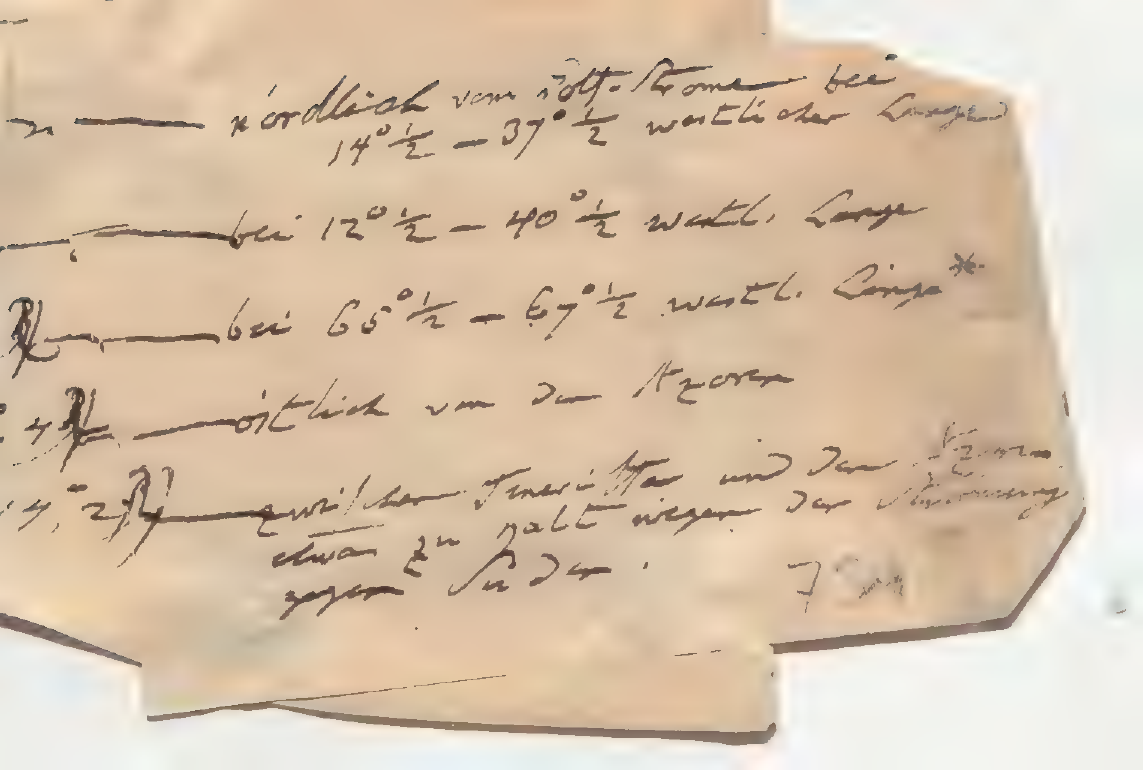 nördlich vom Golf-Strome bei
14°½ – 37°½ westlicher Länge
bei 12°½ – 40°½ westl. Länge
bei 65°½ – 67°½ westl. Länge*
östlich von den Azoren
4
14,°2 zwischen Teneriffa und den Azoren
etwas zu kalt wegen der Strömung
gegen Süden.
7